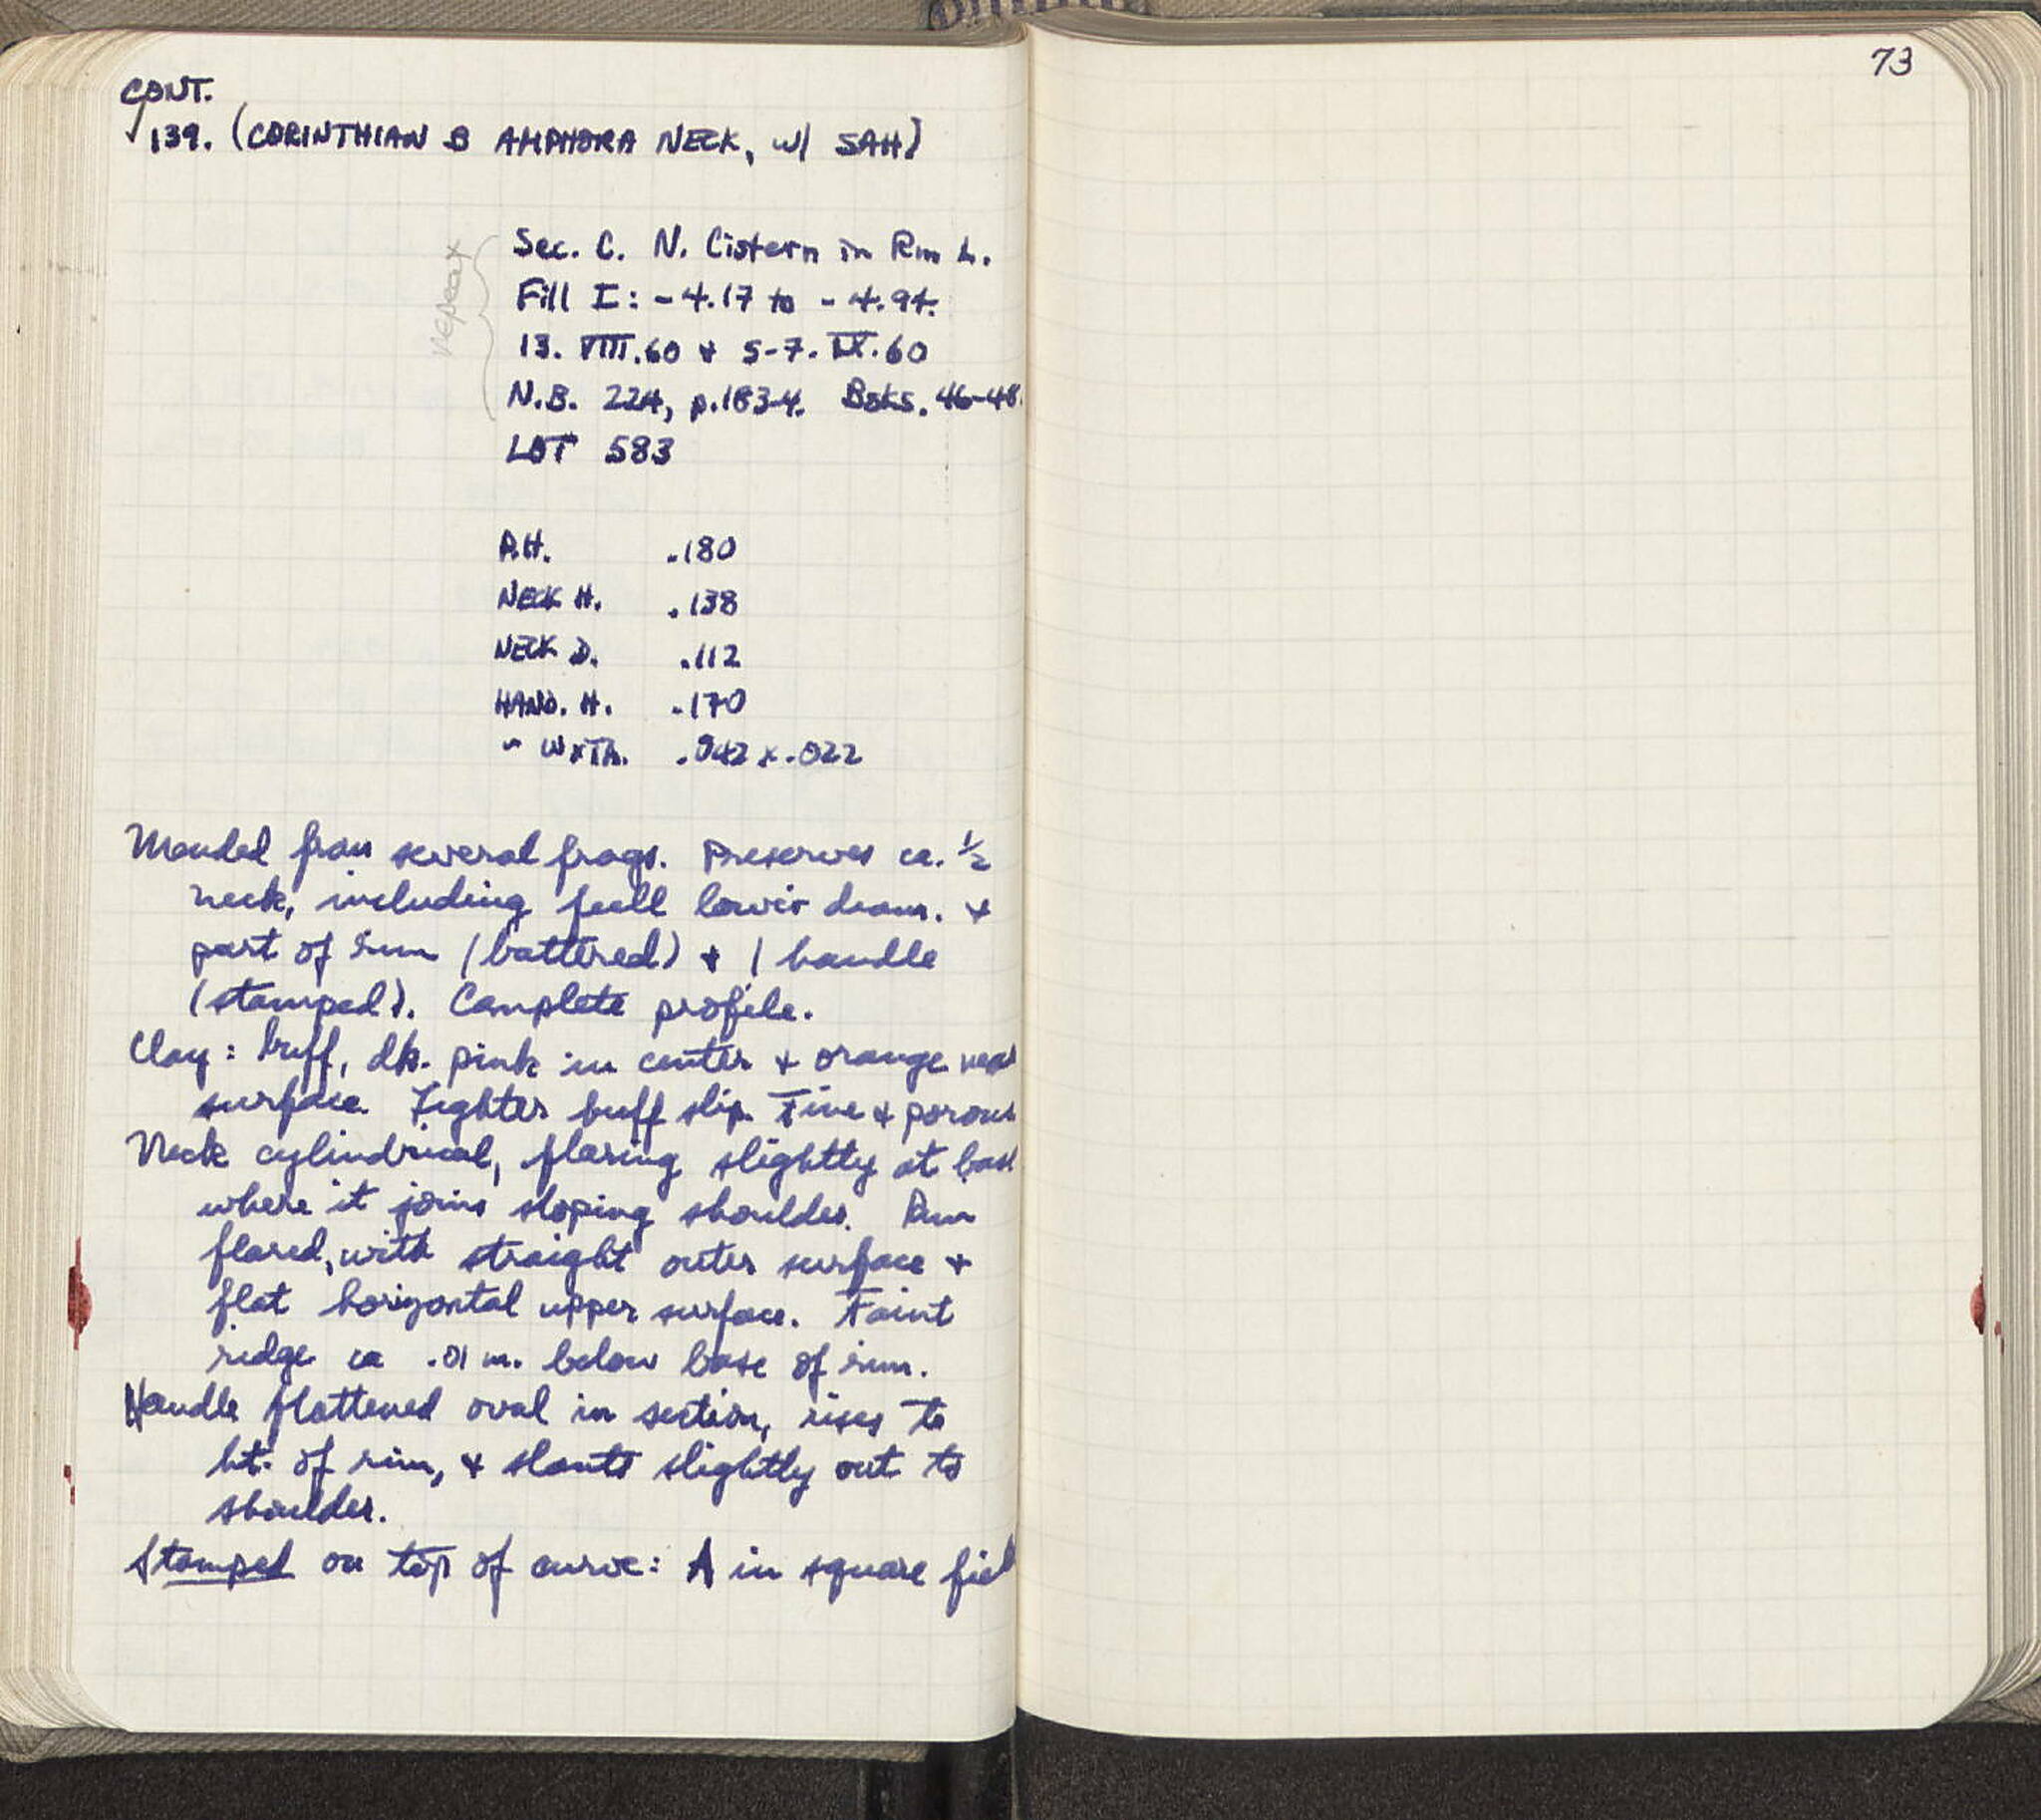 CONT.
139. (CORINTHIAN B AMPHORA NECK, W/ SAH)
Repeat
Sec. C. N. Cistern in Rm L.
Fill I: -4.17 to -4.94.
13. VIII.60 + 5-7. IX.60
N.B. 224, p.183-4. Bsks. 46-48.
LOT 583
P.H. .180
NECK H. .138
NECK D. .112
HAND. H. .170
" W x TH. .042 x .022
Mended from several frags. Preserves ca. 1/2
neck, including full lower diam. +
part of rim (battered) + 1 handle
(stamped). Complete profile.
Clay: buff, dk. pink in center + orange near
surface. Lighter buff slip. Fine + porous
Neck cylindrical, flaring slightly at base
where it joins sloping shoulder. Rim
flared, with straight outer surface +
flat horizontal upper surface. Faint
ridge ca .01 m. below base of rim.
Handle flattened oval in section, rises to
ht. of rim, + slants slightly out to
shoulder.
Stamped on top of curve: A in square field
73